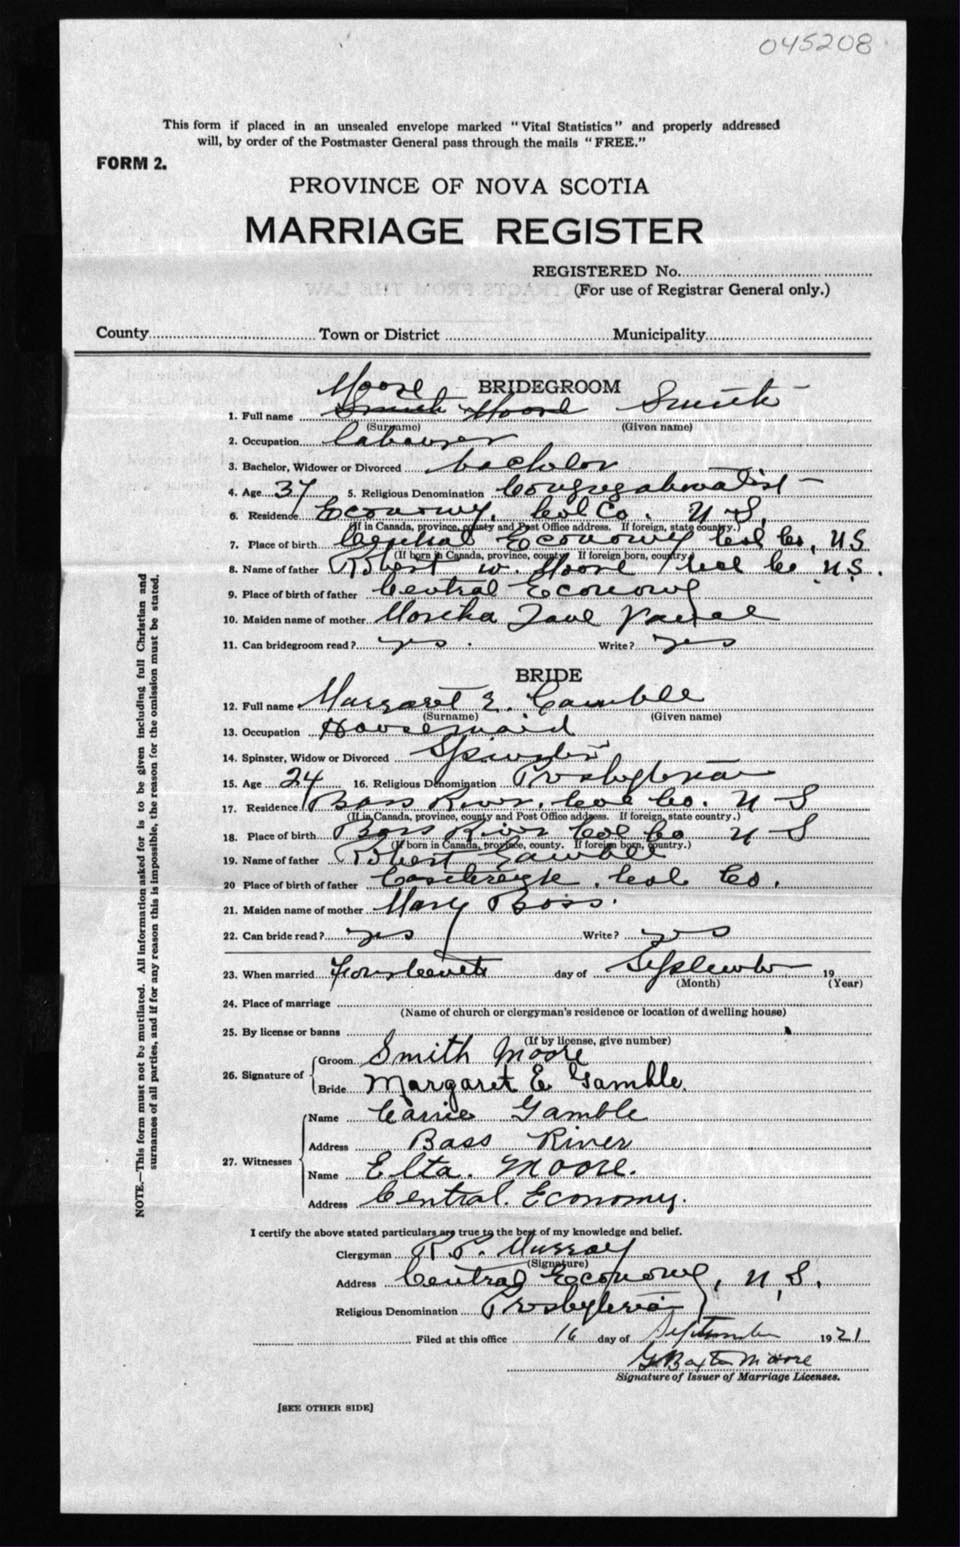 045208
This form if placed in an unsealed envelope marked "Vital Statistics" and properly addressed
will, by order of the Postmaster General pass through the mails "FREE."
FORM 2.
PROVINCE OF NOVA SCOTIA
MARRIAGE REGISTER
REGISTERED No.
(For use of Registrar General only.)
County Town or District Municipality
BRIDEGROOM
Moore
1. Full name Smith Moore Smith
(Surname) (Given name)
2. Occupation labourer
3. Bachelor, Widower or Divorced bachelor
4. Age 37 5. Religious Denomination Congregationalist
6. Residence Economy, Col Co. N S.
(If in Canada, province, county and Post Office address. If foreign, state country.)
7. Place of birth Central Economy Col Co, N S
(If born in Canada, province, county. If foreign born, country)
8. Name of father Robert W. Moore Col Co N.S.
9. Place of birth of father Central Economy
10. Maiden name of mother Jane
11. Can bridegroom read? yes. Write? yes
BRIDE
12. Full name Margaret E. Gamble
(Surname) (Given name)
13. Occupation Housemaid
14. Spinster, Widow or Divorced Spinster
15. Age 24 16. Religious Denomination Presbyterian
17. Residence Bass River, Col Co. N S
(If in Canada, province, county and Post Office address. If foreign, state country.)
18. Place of birth Bass River Col Co N S
(If born in Canada, province, county. If foreign born, country.)
19. Name of father Robert Gamble
20 Place of birth of father Castlereigh, Col Co.
21. Maiden name of mother Mary
22. Can bride read? yes Write? yes
23. When married day of September 19
(Month) (Year)
24. Place of marriage
(Name of church or clergyman's residence or location of dwelling house)
25. By license or banns
(If by license, give number)
26. Signature of Groom Smith Moore
Bride Margaret E Gamble.
27. Witnesses Name Carrie Gamble
Address Bass River
Name Elta. Moore.
Address Central. Economy.
I certify the above stated particulars are true to the best of my knowledge and belief.
Clergyman R. P. Murray
(Signature)
Address Central Economy, N. S.
Religious Denomination Presbyterian
Filed at this office 16 day of September 1921
G Baxter Moore
Signature of Issuer of Marriage Licenses.
[SEE OTHER SIDE]
NOTE.—This form must not be mutilated. All information asked for is to be given including full Christian and
surnames of all parties, and if for any reason this is impossible, the reason for the omission must be stated.